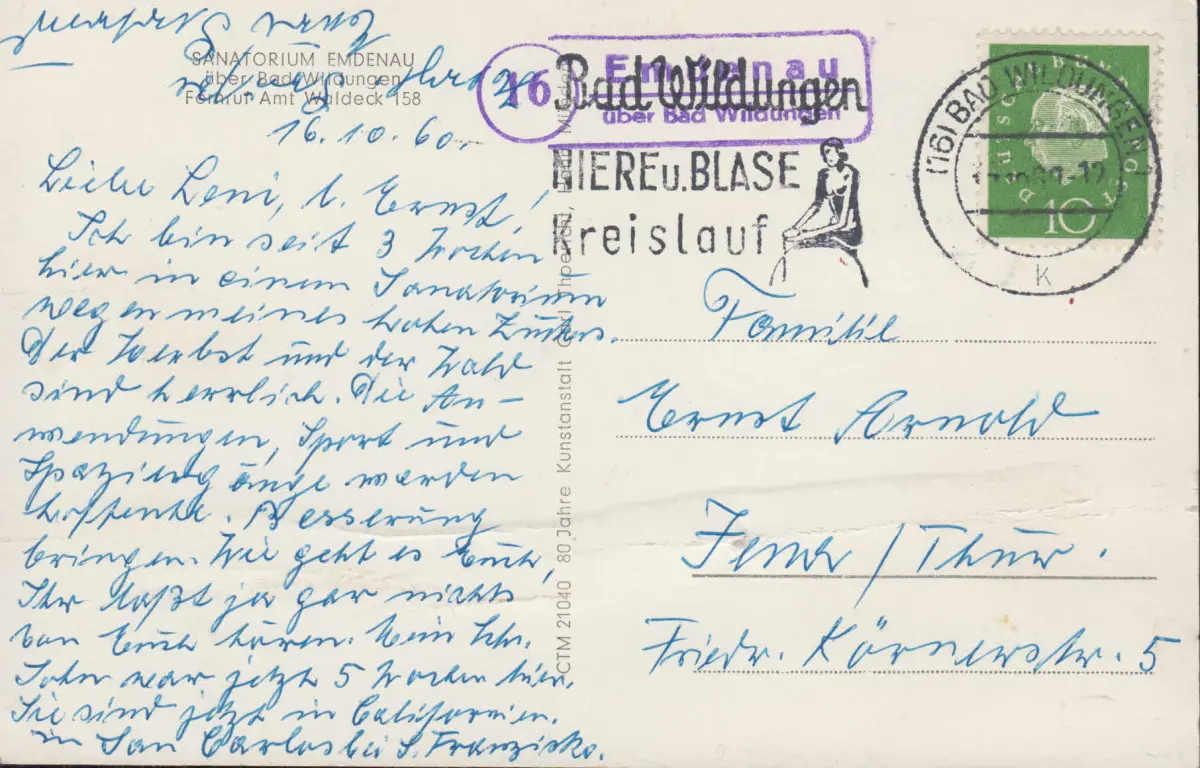 SANATORIUM EMDENAU
über Bad Wildungen
Fernruf Amt Waldeck 158
16.10.60.
Liebe Leni, l. Ernst!
Ich bin seit 3 Wochen
hier in einem Sanatorium
wegen meines hohen Zuckers.
Der Herbst und der Wald
sind herrlich. Die An-
wendungen, Sport und
Spaziergänge werden
hoffentl. Besserung
bringen. Wie geht es Euch,
Ihr laßt ja gar nichts
von Euch hören. Mein
Sohn war jetzt 5 Wochen hier.
Sie sind jetzt in Californien.
in San Carlos bei S. Franzisko.
CTM 21040 80 Jahre Kunstanstalt
16
Emdenau
über Bad Wildungen
Bad Wildungen
NIERE u. BLASE
Kreislauf
(16) BAD WILDUNGEN 1
k
DEUTSCHE BUNDESPOST
10
Familie
Ernst Arnold
Jena / Thür.
Friedr. Körnerstr. 5